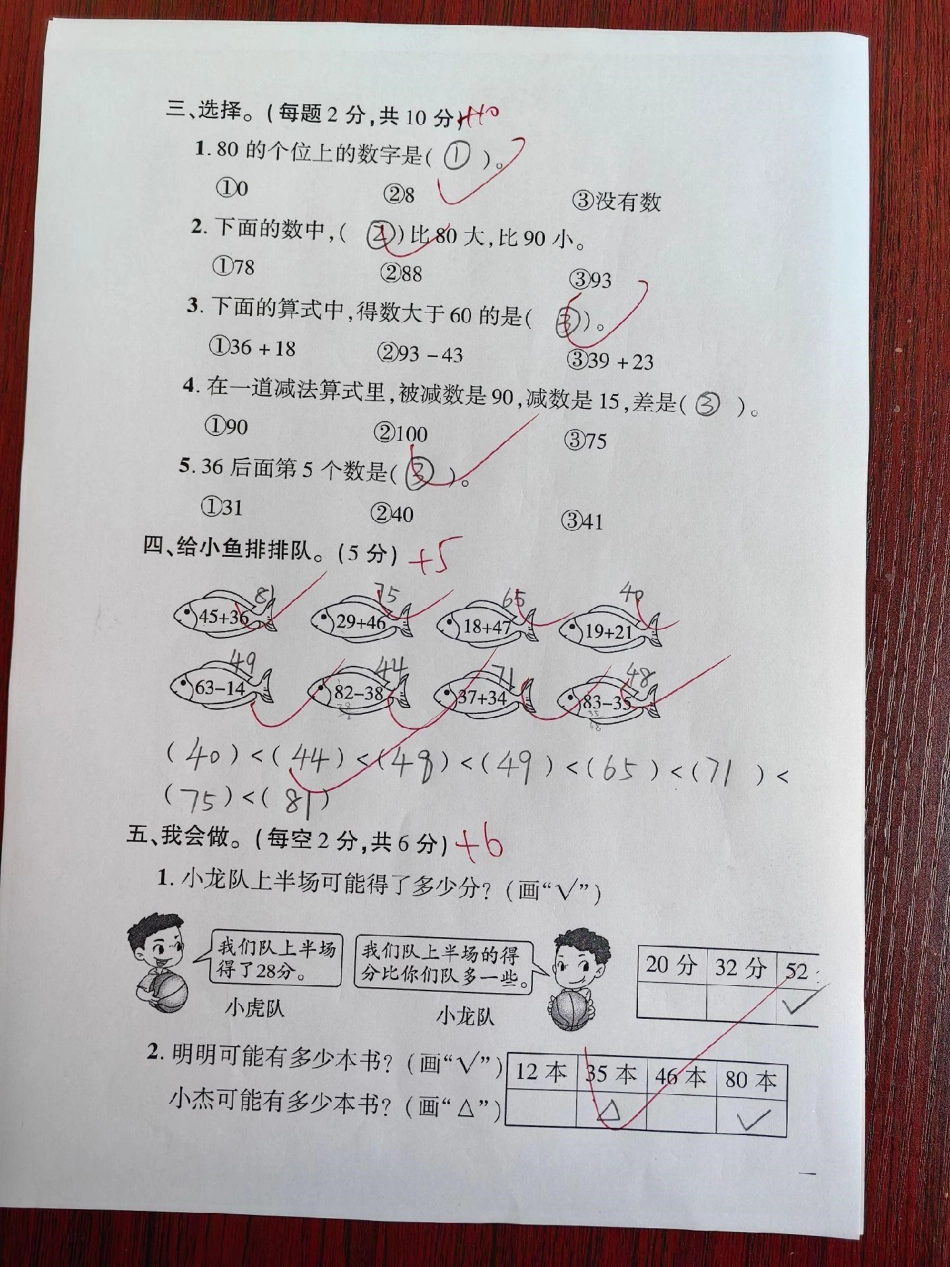 三、选择。(每题2分,共10分) +10
1. 80的个位上的数字是( ① )。
①0 ②8 ③没有数
2. 下面的数中,( ② )比80大,比90小。
①78 ②88 ③93
3. 下面的算式中,得数大于60的是( ③ )。
①36+18 ②93-43 ③39+23
4. 在一道减法算式里,被减数是90,减数是15,差是( ③ )。
①90 ②100 ③75
5. 36后面第5个数是( ③ )。
①31 ②40 ③41
四、给小鱼排排队。(5分) +5
81 75 65 40
45+36 29+46 18+47 19+21
49 44 71 48
63-14 82-38 37+34 83-35
(40)<(44)<(48)<(49)<(65)<(71)<
(75)<(81)
五、我会做。(每空2分,共6分) +6
1. 小龙队上半场可能得了多少分?(画“√”)
我们队上半场
得了28分。
小虎队
我们队上半场的得
分比你们队多一些。
小龙队
20分 32分 52
✓
2. 明明可能有多少本书?(画“√”)
小杰可能有多少本书?(画“△”)
12本 35本 46本 80本
△ ✓